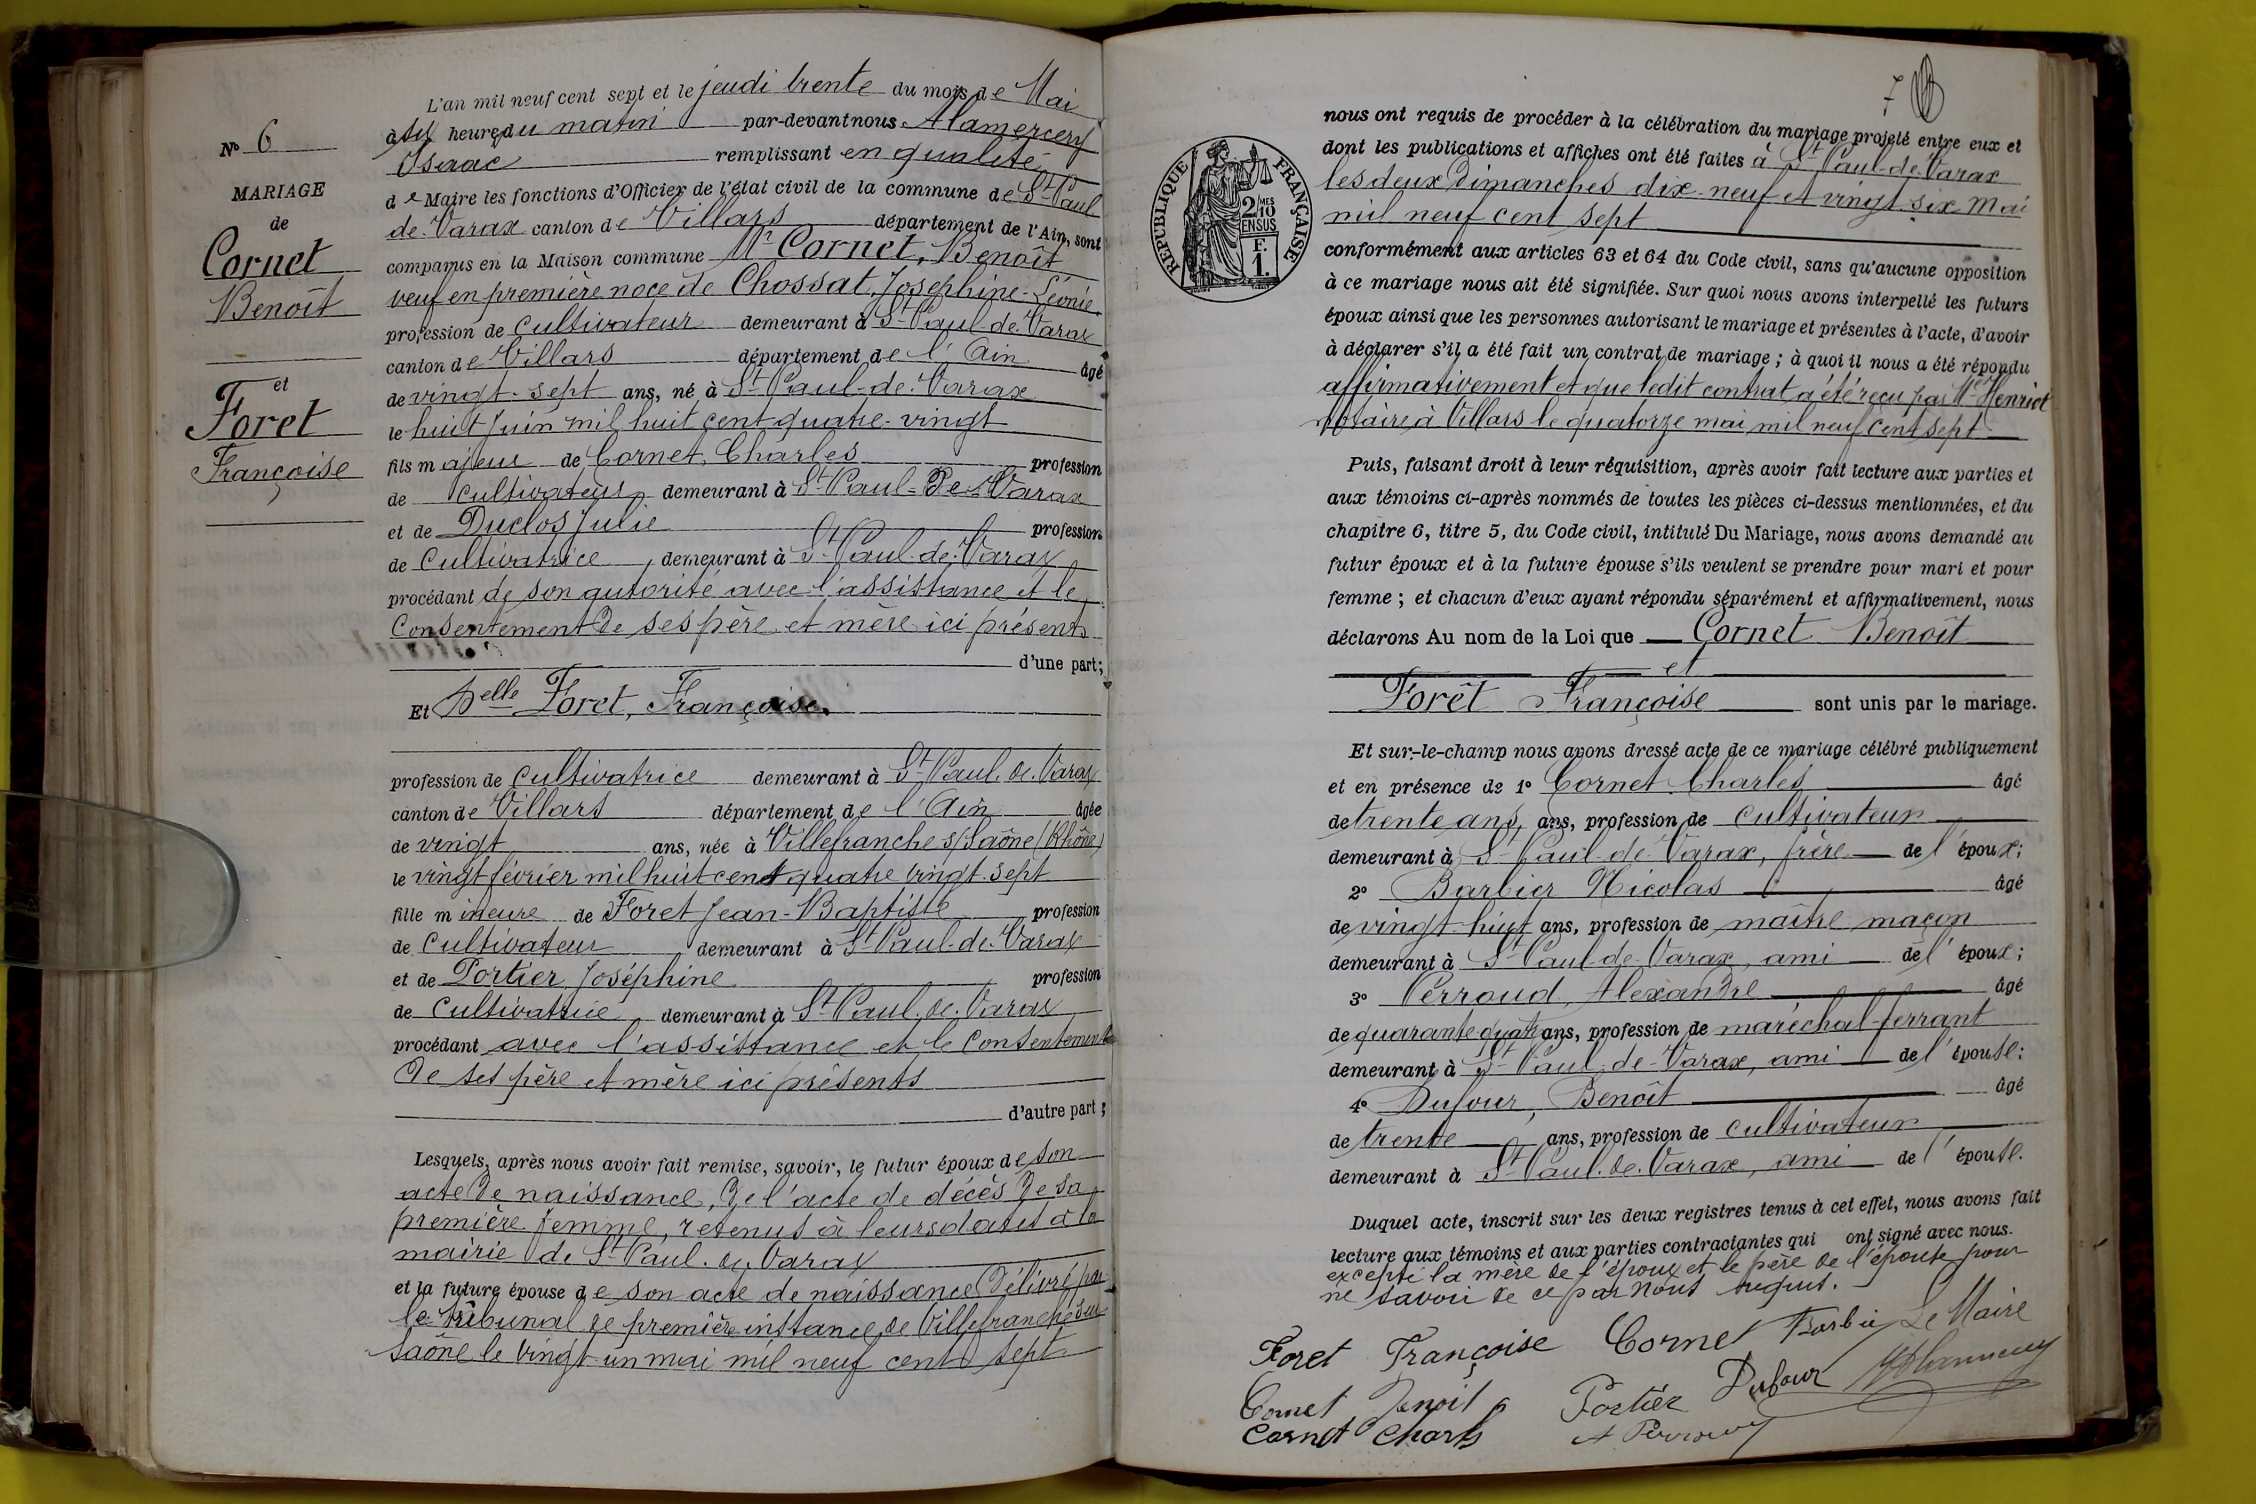 N° 6
MARIAGE
de
Cornet
Benoît
et
Foret
Françoise
L'an mil neuf cent sept et le jeudi trente du mois de Mai
à six heures du matin par-devant nous Alamercery
Isaac remplissant en qualité
de Maire les fonctions d'Officier de l'état civil de la commune de St Paul
de Varax canton de Villars département de l'Ain, sont
comparus en la Maison commune Mr Cornet, Benoît
veuf en première noce de Chossat, Joséphine-Léonie
profession de cultivateur demeurant à St Paul-de-Varax
canton de Villars département de l'Ain âgé
de vingt-sept ans, né à St Paul-de-Varax
le huit Juin mil huit cent quatre-vingt
fils majeur de Cornet, Charles profession
de cultivateur demeurant à St Paul-De-Varax
et de Duclos Julie profession
de Cultivatrice demeurant à St Paul-de-Varax
procédant de son autorité avec l'assistance et le
Consentement De ses père et mère ici présents
d'une part;
Et Delle Foret, Françoise.
profession de Cultivatrice demeurant à St Paul.de.Varax
canton de Villars département de l'Ain âgée
de vingt ans, née à Villefranche s/Saône (Rhône)
le vingt février mil huit cent quatre vingt-sept
fille mineure de Foret Jean-Baptiste profession
de Cultivateur demeurant à St Paul-de-Varax
et de Portier Joséphine profession
de Cultivatrice demeurant à St Paul.de.Varax
procédant avec l'assistance et le Consentement
De ses père et mère ici présents
d'autre part;
Lesquels, après nous avoir fait remise, savoir, le futur époux de son
acte De naissance, De l'acte de décès De sa
première femme, retenus à leurs dates à la
mairie de St Paul.de.Varax
et la future épouse de son acte de naissance Délivré par
le tribunal de première instance de Villefranche sur
Saône le vingt-un mai mil neuf cent sept
7
RÉPUBLIQUE FRANÇAISE
2 MES
10
EN SUS
F.
1.
nous ont requis de procéder à la célébration du mariage projeté entre eux et
dont les publications et affiches ont été faites à St Paul-de-Varax
les deux Dimanches dix-neuf et vingt-six Mai
mil neuf cent sept
conformément aux articles 63 et 64 du Code civil, sans qu'aucune opposition
à ce mariage nous ait été signifiée. Sur quoi nous avons interpellé les futurs
époux ainsi que les personnes autorisant le mariage et présentes à l'acte, d'avoir
à déclarer s'il a été fait un contrat de mariage; à quoi il nous a été répondu
affirmativement et que ledit contrat a été reçu par Me Henriot
Notaire à Villars le quatorze mai mil neuf cent sept
Puis, faisant droit à leur réquisition, après avoir fait lecture aux parties et
aux témoins ci-après nommés de toutes les pièces ci-dessus mentionnées, et du
chapitre 6, titre 5, du Code civil, intitulé Du Mariage, nous avons demandé au
futur époux et à la future épouse s'ils veulent se prendre pour mari et pour
femme; et chacun d'eux ayant répondu séparément et affirmativement, nous
déclarons Au nom de la Loi que Cornet Benoît
et
Forêt Françoise sont unis par le mariage.
Et sur-le-champ nous avons dressé acte de ce mariage célébré publiquement
et en présence de 1° Cornet Charles âgé
de trente ans, ans, profession de cultivateur
demeurant à St Paul-de-Varax, frère de l'époux;
2° Barbier Nicolas âgé
de vingt-huit ans, profession de maître maçon
demeurant à St Paul-de-Varax, ami de l'époux;
3° Perroud, Alexandre âgé
de quarante quatre ans, profession de maréchal-ferrant
demeurant à St Paul-de-Varax, ami de l'épouse;
4° Dufour, Benoît âgé
de trente ans, profession de cultivateur
demeurant à St Paul.de.Varax, ami de l'épouse.
Duquel acte, inscrit sur les deux registres tenus à cet effet, nous avons fait
lecture aux témoins et aux parties contractantes qui ont signé avec nous.
excepté la mère de l'époux et le père de l'épouse pour
ne savoir de ce par Nous requis.
Foret Françoise Cornet Barbier Le Maire
Cornet Benoit Portier Dufour
Cornet Charles A Perroud